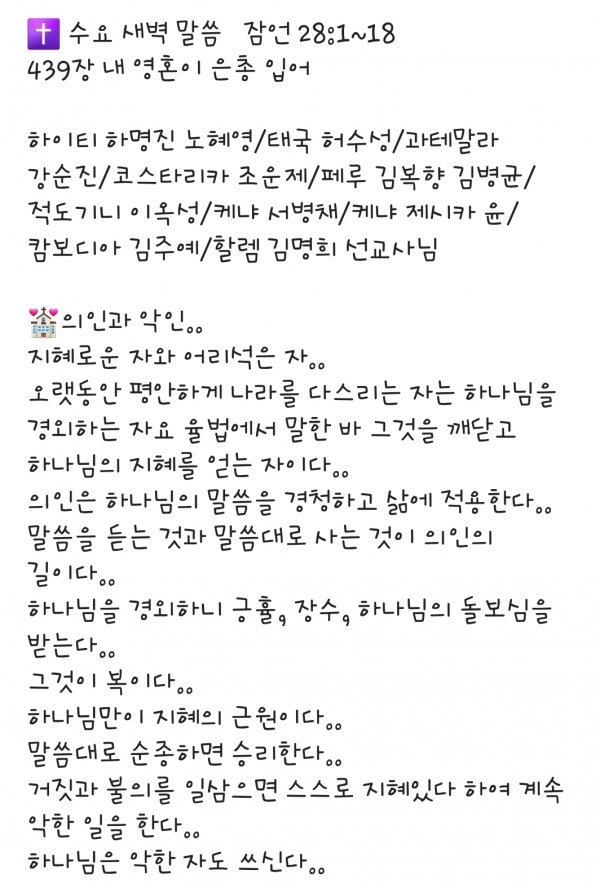 ✝️ 수요 새벽 말씀 잠언 28:1~18
439장 내 영혼이 은총 입어
하이티 하명진 노혜영/태국 허수성/과테말라
강순진/코스타리카 조운제/페루 김복향 김병균/
적도기니 이옥성/케냐 서병채/케냐 제시카 윤/
캄보디아 김주예/할렘 김명희 선교사님
💒의인과 악인。。
지혜로운 자와 어리석은 자。。
오랫동안 평안하게 나라를 다스리는 자는 하나님을
경외하는 자요 율법에서 말한 바 그것을 깨닫고
하나님의 지혜를 얻는 자이다。。
의인은 하나님의 말씀을 경청하고 삶에 적용한다。。
말씀을 듣는 것과 말씀대로 사는 것이 의인의
길이다。。
하나님을 경외하니 긍휼, 장수, 하나님의 돌보심을
받는다。。
그것이 복이다。。
하나님만이 지혜의 근원이다。。
말씀대로 순종하면 승리한다。。
거짓과 불의를 일삼으면 스스로 지혜있다 하여 계속
악한 일을 한다。。
하나님은 악한 자도 쓰신다。。